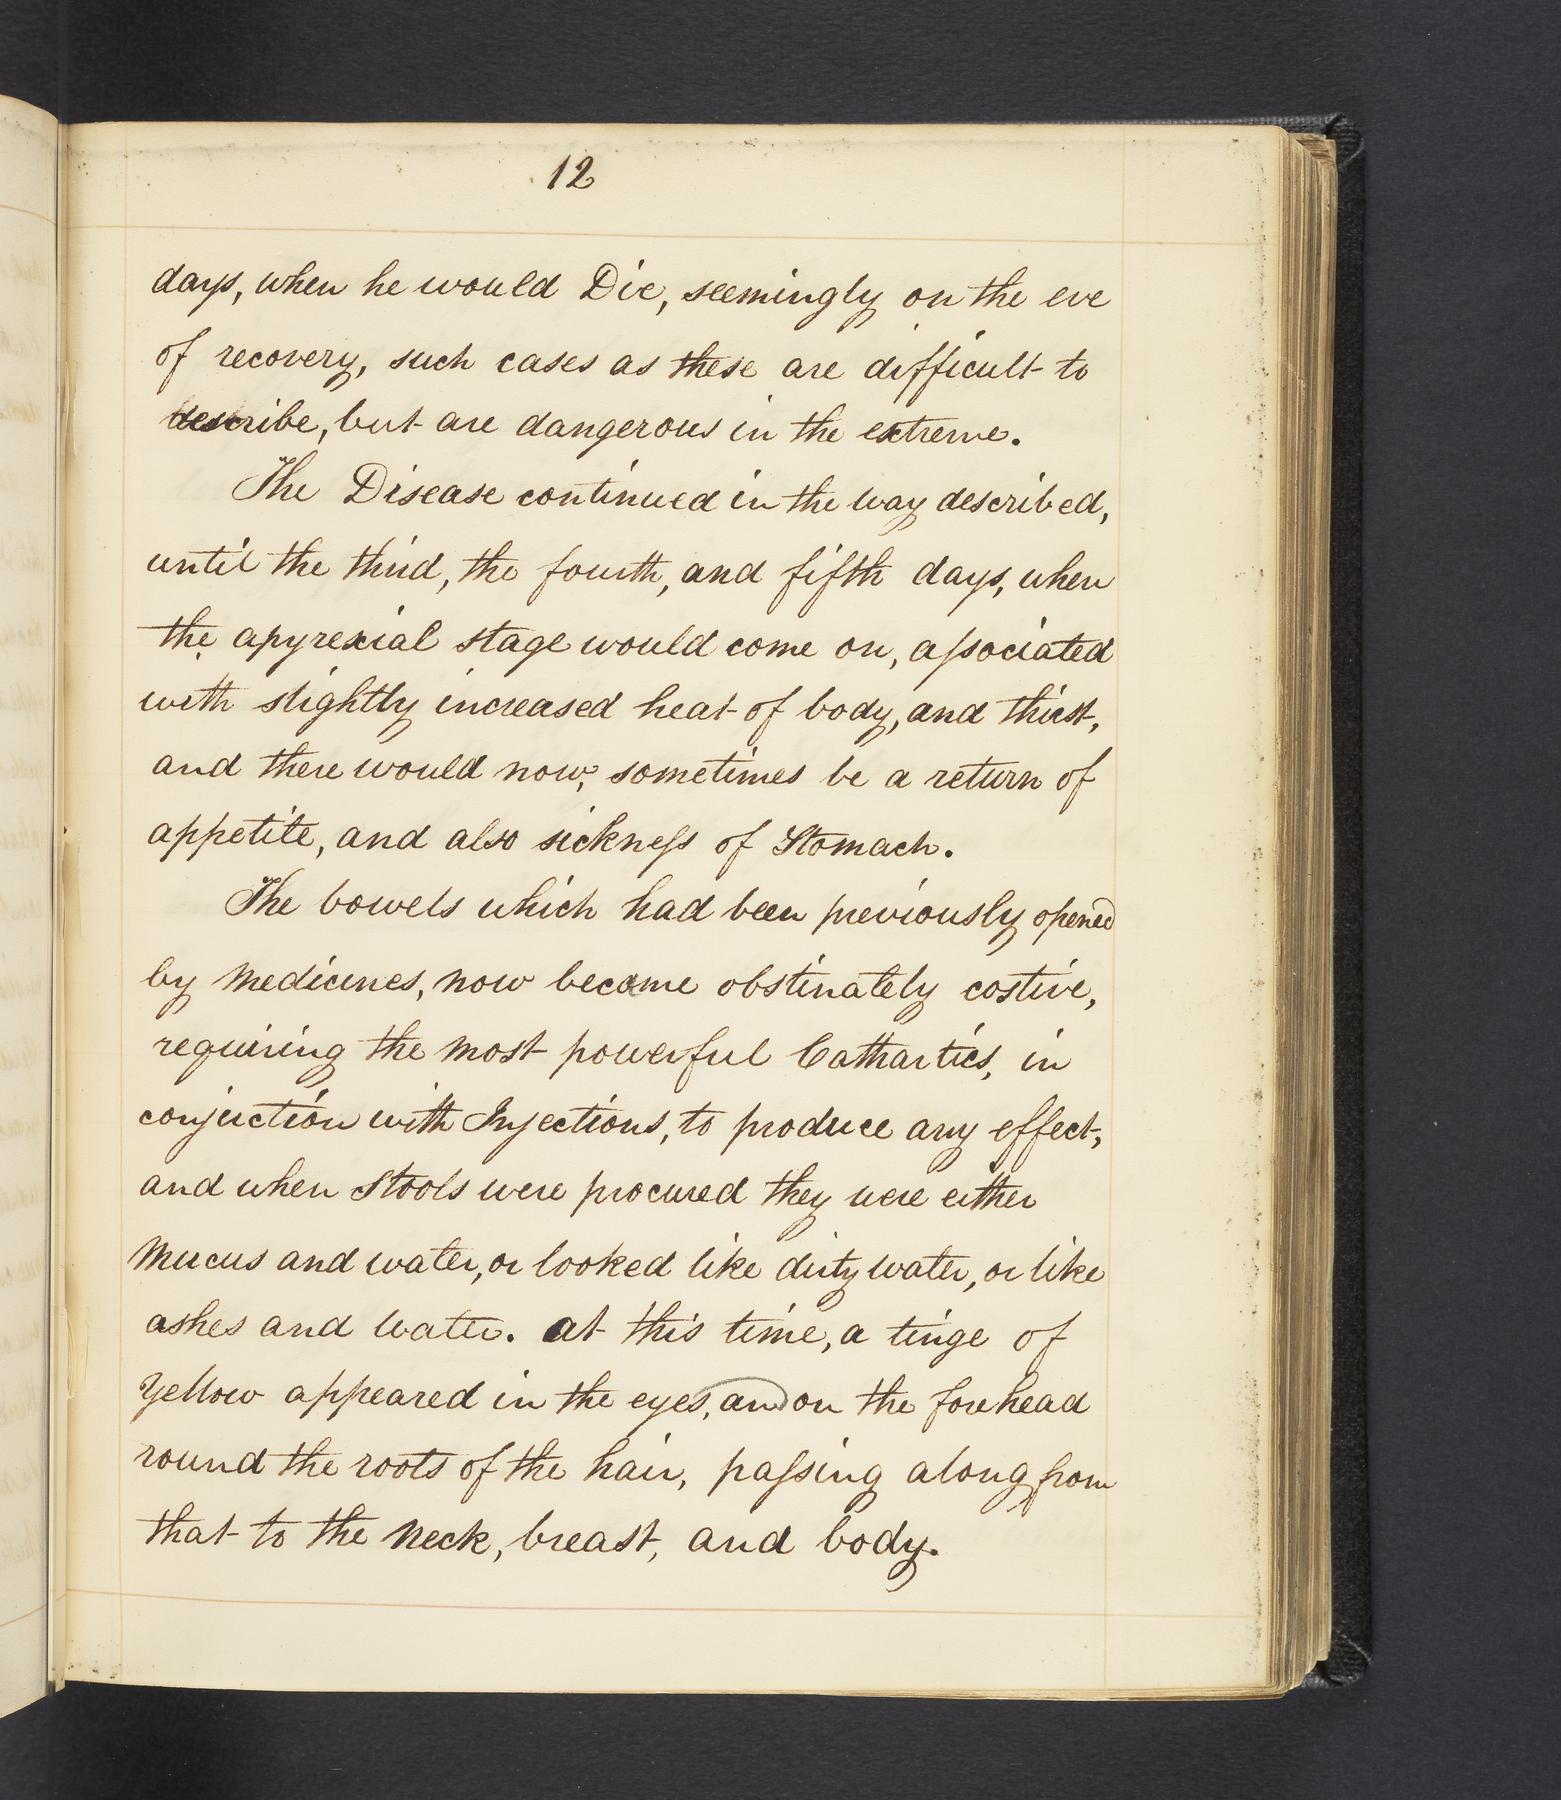 12
days, when he would Die, seemingly on the eve
of recovery, such cases as these are difficult to
describe, but are dangerous in the extreme.
The Disease continued in the way described,
until the third, the fourth, and fifth days, when
the apyrexial stage would come on, aſsociated
with slightly increased heat of body, and thirst,
and there would now, sometimes be a return of
appetite, and also sickneſs of Stomach.
The bowels which had been previously opened
by Medicines, now became obstinately costive,
requiring the most powerful Cathartics, in
conjuction with Injections, to produce any effect,
and when Stools were procured they were either
Mucus and water, or looked like dirty water, or like
ashes and water. at this time, a tinge of
Yellow appeared in the eyes, and on the forehead
round the roots of the hair, paſsing along from
that to the Neck, breast, and body.